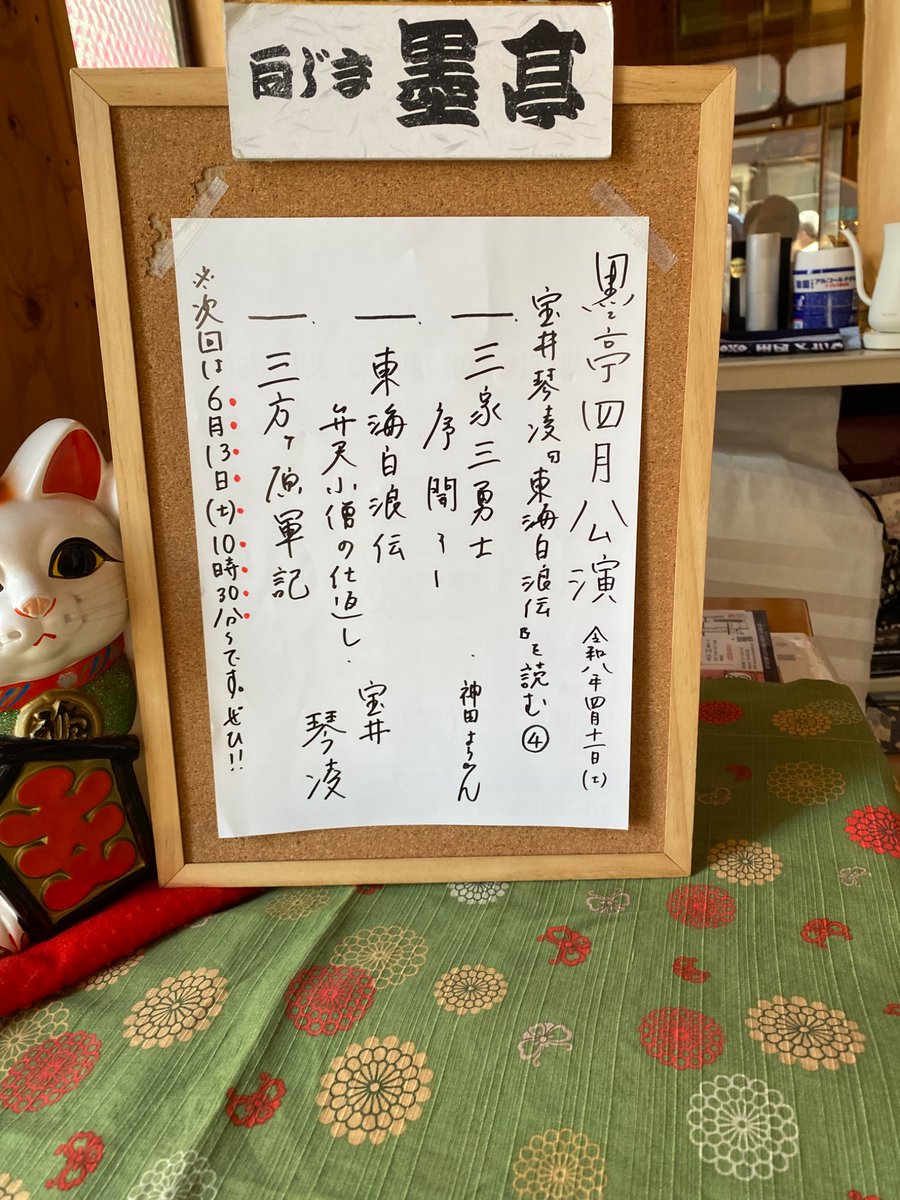 向じま 墨亭
墨亭四月公演 令和八年四月十一日(土)
宝井琴凌「東海白浪伝」を読む④
一. 三家三勇士
序開き 神田ようかん
一. 東海白浪伝
弁天小僧の仕返し
一. 三方ヶ原軍記
宝井
琴凌
※次回は6月13日(土)10時30分〜です。ぜひ!!
アルコール